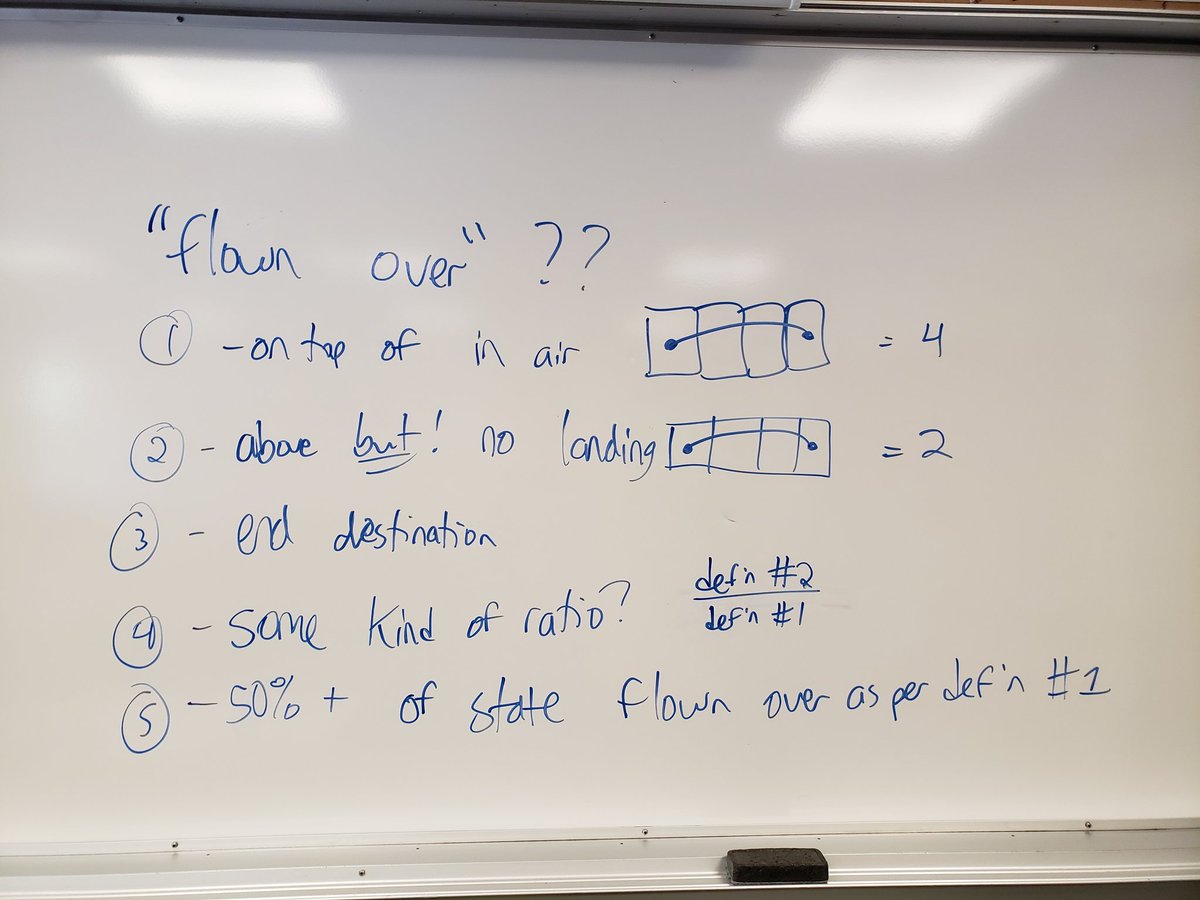 "flown over" ??
① - on top of in air = 4
② - above but! no landing = 2
③ - end destination
④ - some kind of ratio? def'n #2
def'n #1
⑤ - 50% + of state flown over as per def'n #1